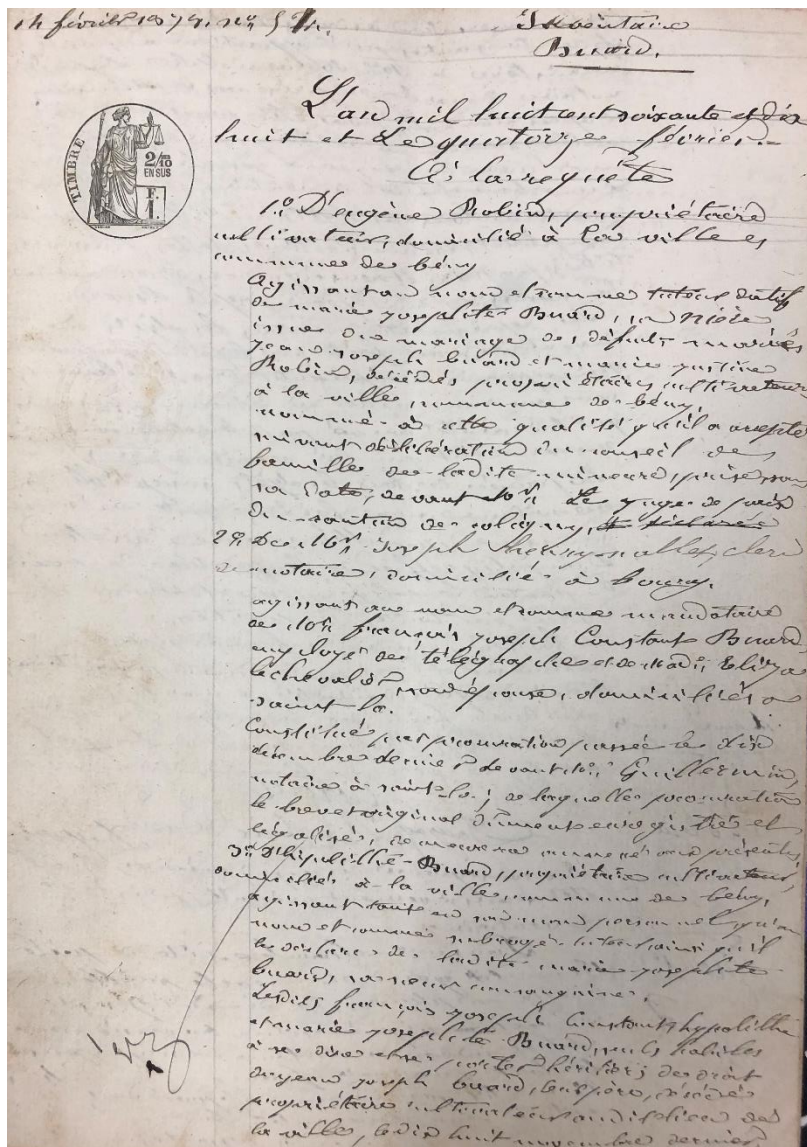 14 février 1878. nº
Inventaire
Buard.
TIMBRE
2/10
EN SUS
F.
1.
L'an mil huit cent soixante et dix
huit et Le quatorze février.
A la requête
1º D'eugène Robin, propriétaire
cultivateur, domicilié à La ville
commune de bény
agissant au nom et comme tuteur datif
de marie josephte Buard, sa nièce
issue du mariage des défunts mariés
jean joseph buard et marie justine
Robin, décédés propriétaires cultivateurs
à la ville, commune de bény,
nommé à cette qualité qu'il a accepté
suivant délibération du conseil de
famille de ladite mineure, prise sous
sa date, devant Mr Le juge de paix
du canton de coligny,
2º De Mr joseph thévenon clerc
de notaire, domicilié à bourg,
agissant au nom et comme mandataire
de Mr françois joseph Constant Buard,
employé des télégraphes et de Made Eliza
lechevalier son épouse, domiciliés à
saint Lo.
Constitué par procuration passée le dix
décembre dernier devant Me Guillemin,
notaire à saint-lo; de laquelle procuration
le brevet original dûment enregistré et
légalisé, demeurera annexé aux présentes,
3º D'hipolithe Buard, propriétaire cultivateur,
domicilié à la ville, commune de bény,
agissant tant en son nom personnel, qu'au
nom et comme subrogé tuteur ainsi qu'il
le déclare de ladite marie josephte
buard, sa soeur consanguine.
Lesdits françois joseph Constant, hypolithe
et marie josephte Buard, seuls habiles
à se dire et se porter héritiers de droit
de jean joseph buard, leur père, décédé
propriétaire cultivateur audit lieu de
la ville, le dix huit novembre dernier